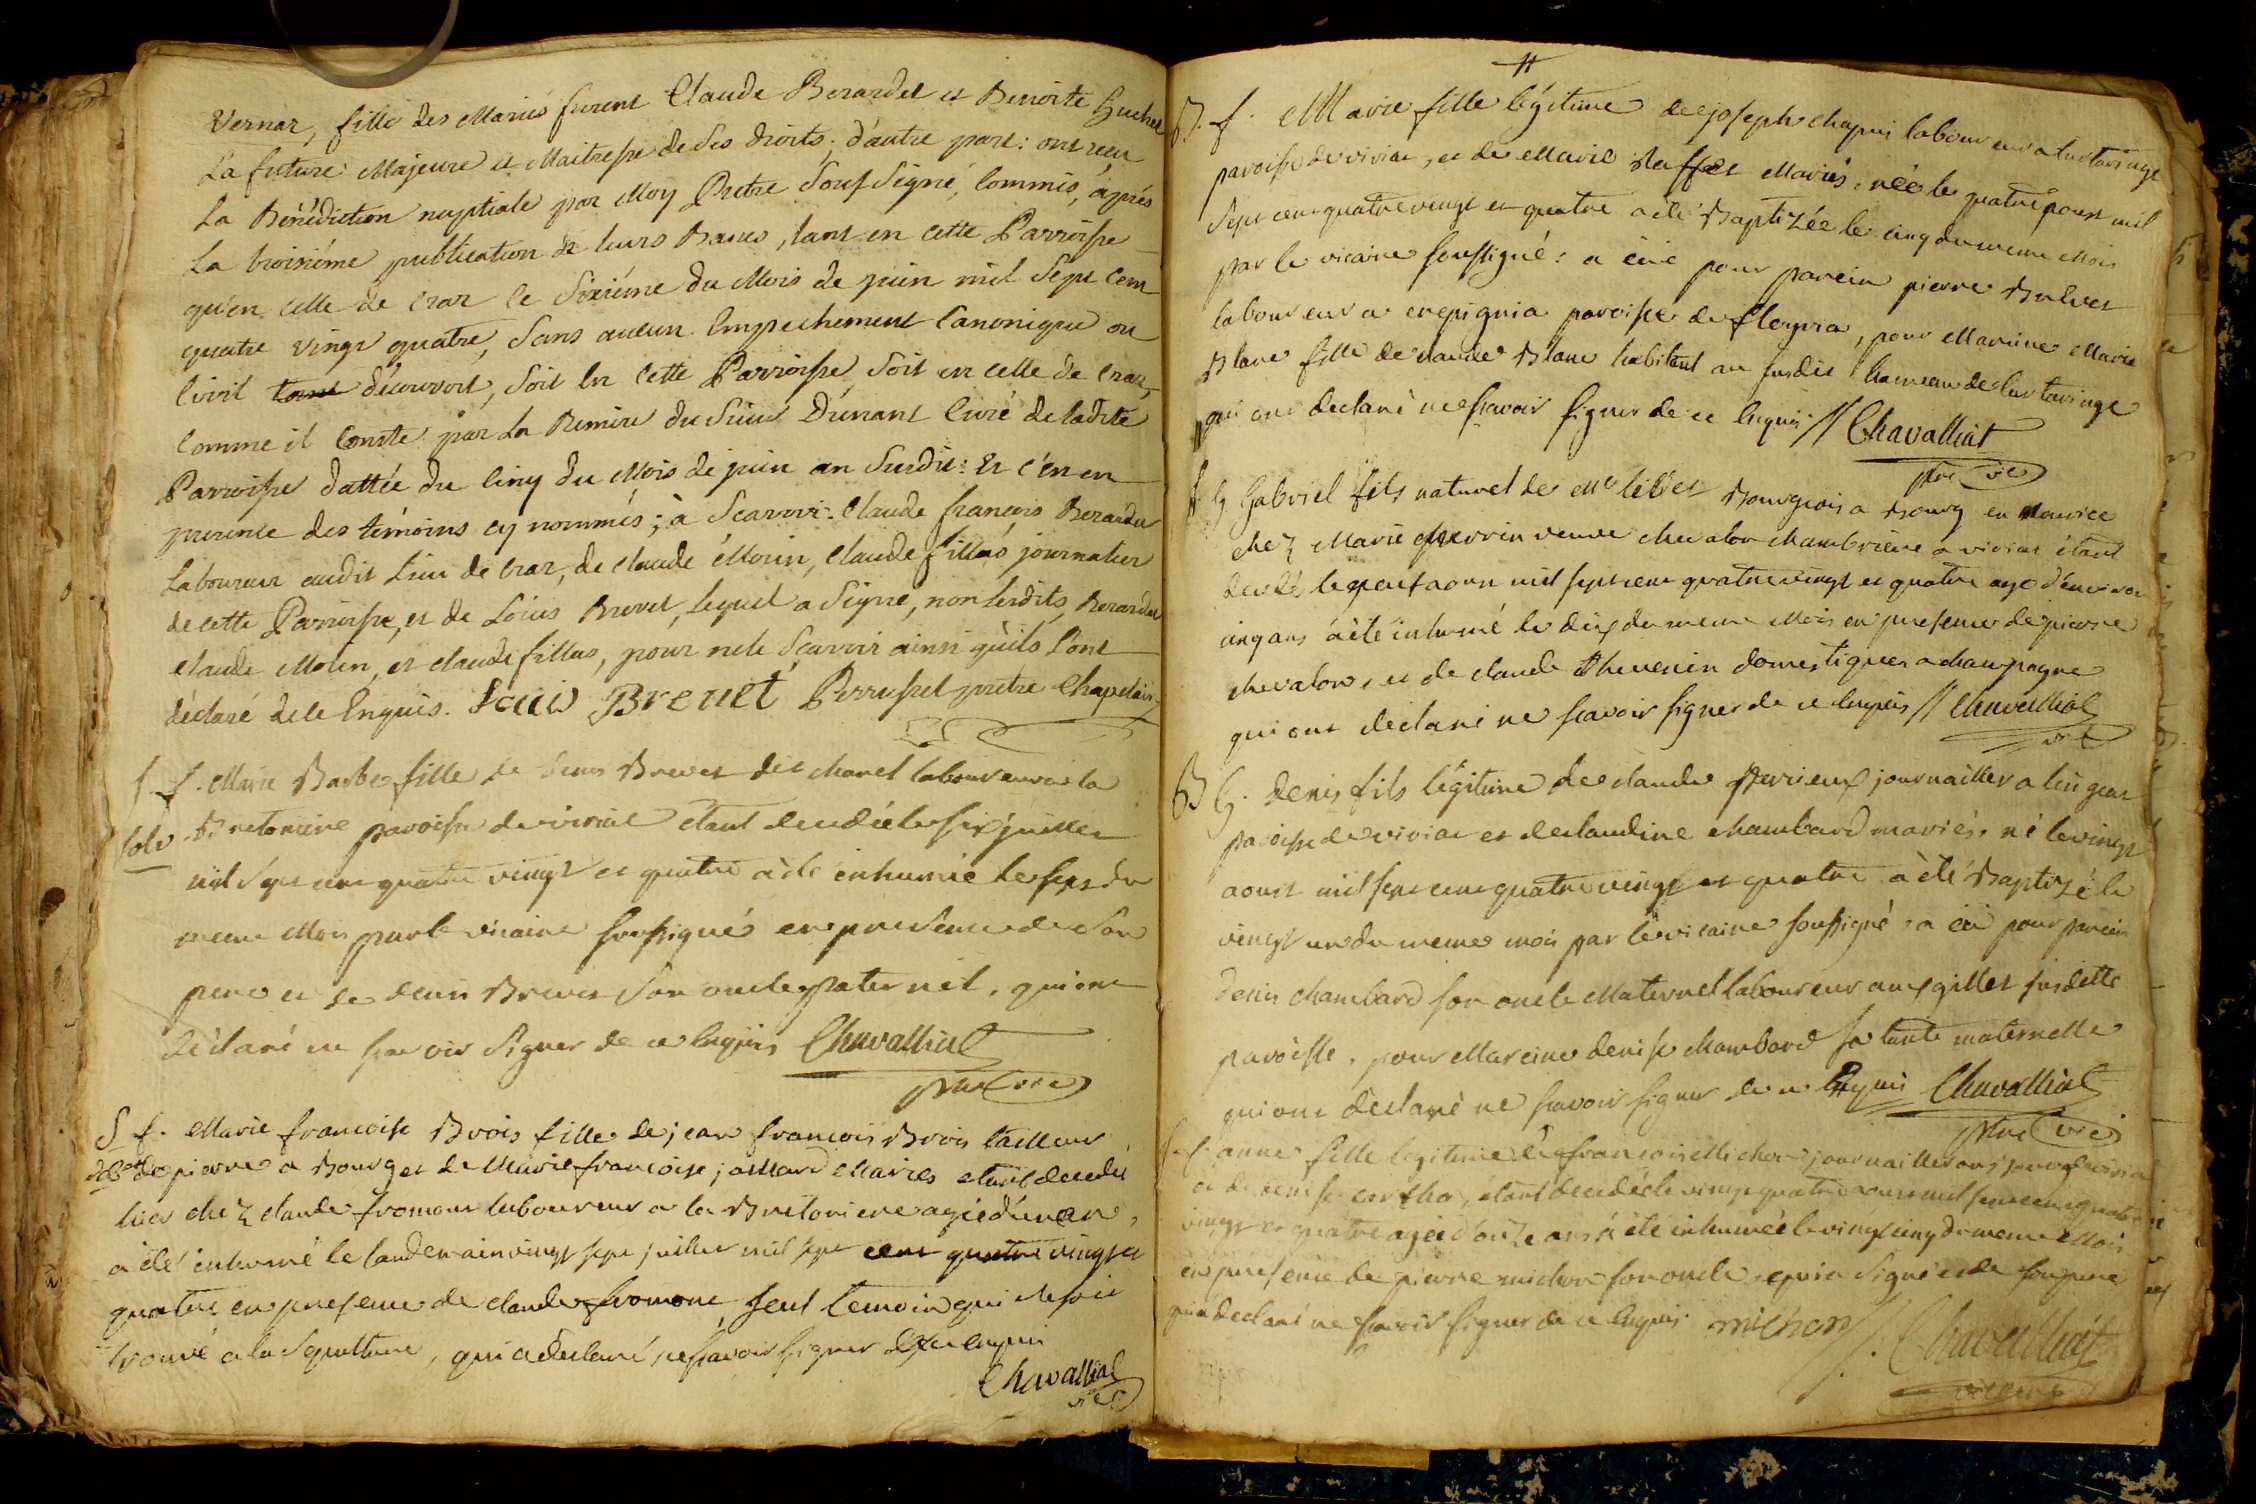 Vernar, fille des Mariés furent Claude Berardet et Benoite
La future Majeure et Maitresse de ses droits; d'autre part: ont reçu
La Bénédiction nuptiale par Moy Prêtre Soussigné, Commis, après
La troisiéme publication de leurs Bancs, tant en cette Parroisse
qu'en celle de Cras le Sixiéme du Mois de juin mil Sept Cent
quatre vingt quatre, Sans aucun Empechement Canonique ou
Civil découvert, Soit en Cette Parroisse, Soit en celle de Cras,
Comme il Conste par La Remise du Sieur Dunant Curé de ladite
Parroisse dattée du Cinq du Mois de juin an Susdit: Et c'en en
presence des témoins cy nommés; à Scavoir: Claude françois Berardet
Laboureur audit Lieu de Cras, de Claude Morin, Claude fillas journalier
de cette Parroisse, et de Loüis Brevet, lequel a Signé, non lesdits, Berardet
Claude Morin, et Claude fillas, pour ne le Scavoir ainsi qu'ils l'ont
déclaré de ce Enquis. Louis Brevet Perruset prêtre Chapelain
S. f. Marie Barbe fille de denis Brevet dit charel laboureur a la
solv. Bretoniere paroisse de viriat etant decedée le six juillet
mil sept cent quatre vingt et quatre a été inhumée le sept du
meme Mois par le vicaire soussigné en presence de Son
pere et de denis Brevet Son oncle paternel, qui ont
déclaré ne scavoir Signer de ce Enquis Chavalliat
ptre vic
S f. Marie francoise Brois fille de jean francois Brois tailleur
de pierre a Bourg et de Marie francoise jaMard Mariés etant decedée
hier chez claude fromont laboureur a la Bretoniere agée d'un an,
a été inhumé le landemain vingt sept juillet mil sept cent quatre vingt et
quatre en presence de claude fromont, seul temoin qui se soit
trouvé a la Sepulture, qui a declaré ne scavoir signer de ce enquis
Chavalliat
vic
B. f. Marie fille légitime de joseph chapuis laboureur a
paroisse de viriat, et de Marie Raffet Mariés, née le quatre aoust mil
sept cent quatre vingt et quatre a été Baptizée le cinq du meme Mois
par le vicaire soussigné: a eüe pour parein pierre Bulvet
laboureur a crepignia paroisse de fleyria, pour Mareine Marie
Blanc fille de claude Blanc habitant au susdit hameau de
qui ont declaré ne scavoir signer de ce Enquis // Chavalliat
ptre vic
S. G Gabriel fils naturel de Mr Bourgeois a Bourg en nourice
chez Marie Perrin veuve chevalon chambriere a viriat étant
decedé le neuf aoust mil sept cent quatre vingt et quatre agé d'environ
cinq ans a été inhumé le dix du meme Mois en presence de pierre
chevalon, et de claude thevenin domestiques a champagne
qui ont déclaré ne scavoir signer de ce Enquis // Chavalliat
vic
B G. Denis fils légitime de claude Perrieux journallier a
paroisse de viriat et de claudine chambard mariés, né le vingt
aoust mil sept cent quatre vingt et quatre a été Baptizé le
vingt un du meme mois par le vicaire soussigné: a eü pour parein
Denis chambard son oncle Maternel laboureur aux gillet susditte
paroisse, pour Mareine denise chambard sa tante maternelle
qui ont déclaré ne scavoir signer de ce Enquis Chavalliat
ptre vic
S. f. anne fille legitime de francois Michon journallier
et de denise étant decedée le vingt quatre aoust mil sept cent quatre
vingt et quatre agée d'onze ans a été inhumée le vingt cinq du meme Mois
en presence de pierre michon son oncle, qui a signé et de son pere
qui a declaré ne scavoir signer de ce Enquis michon //. Chavalliat
vicaire